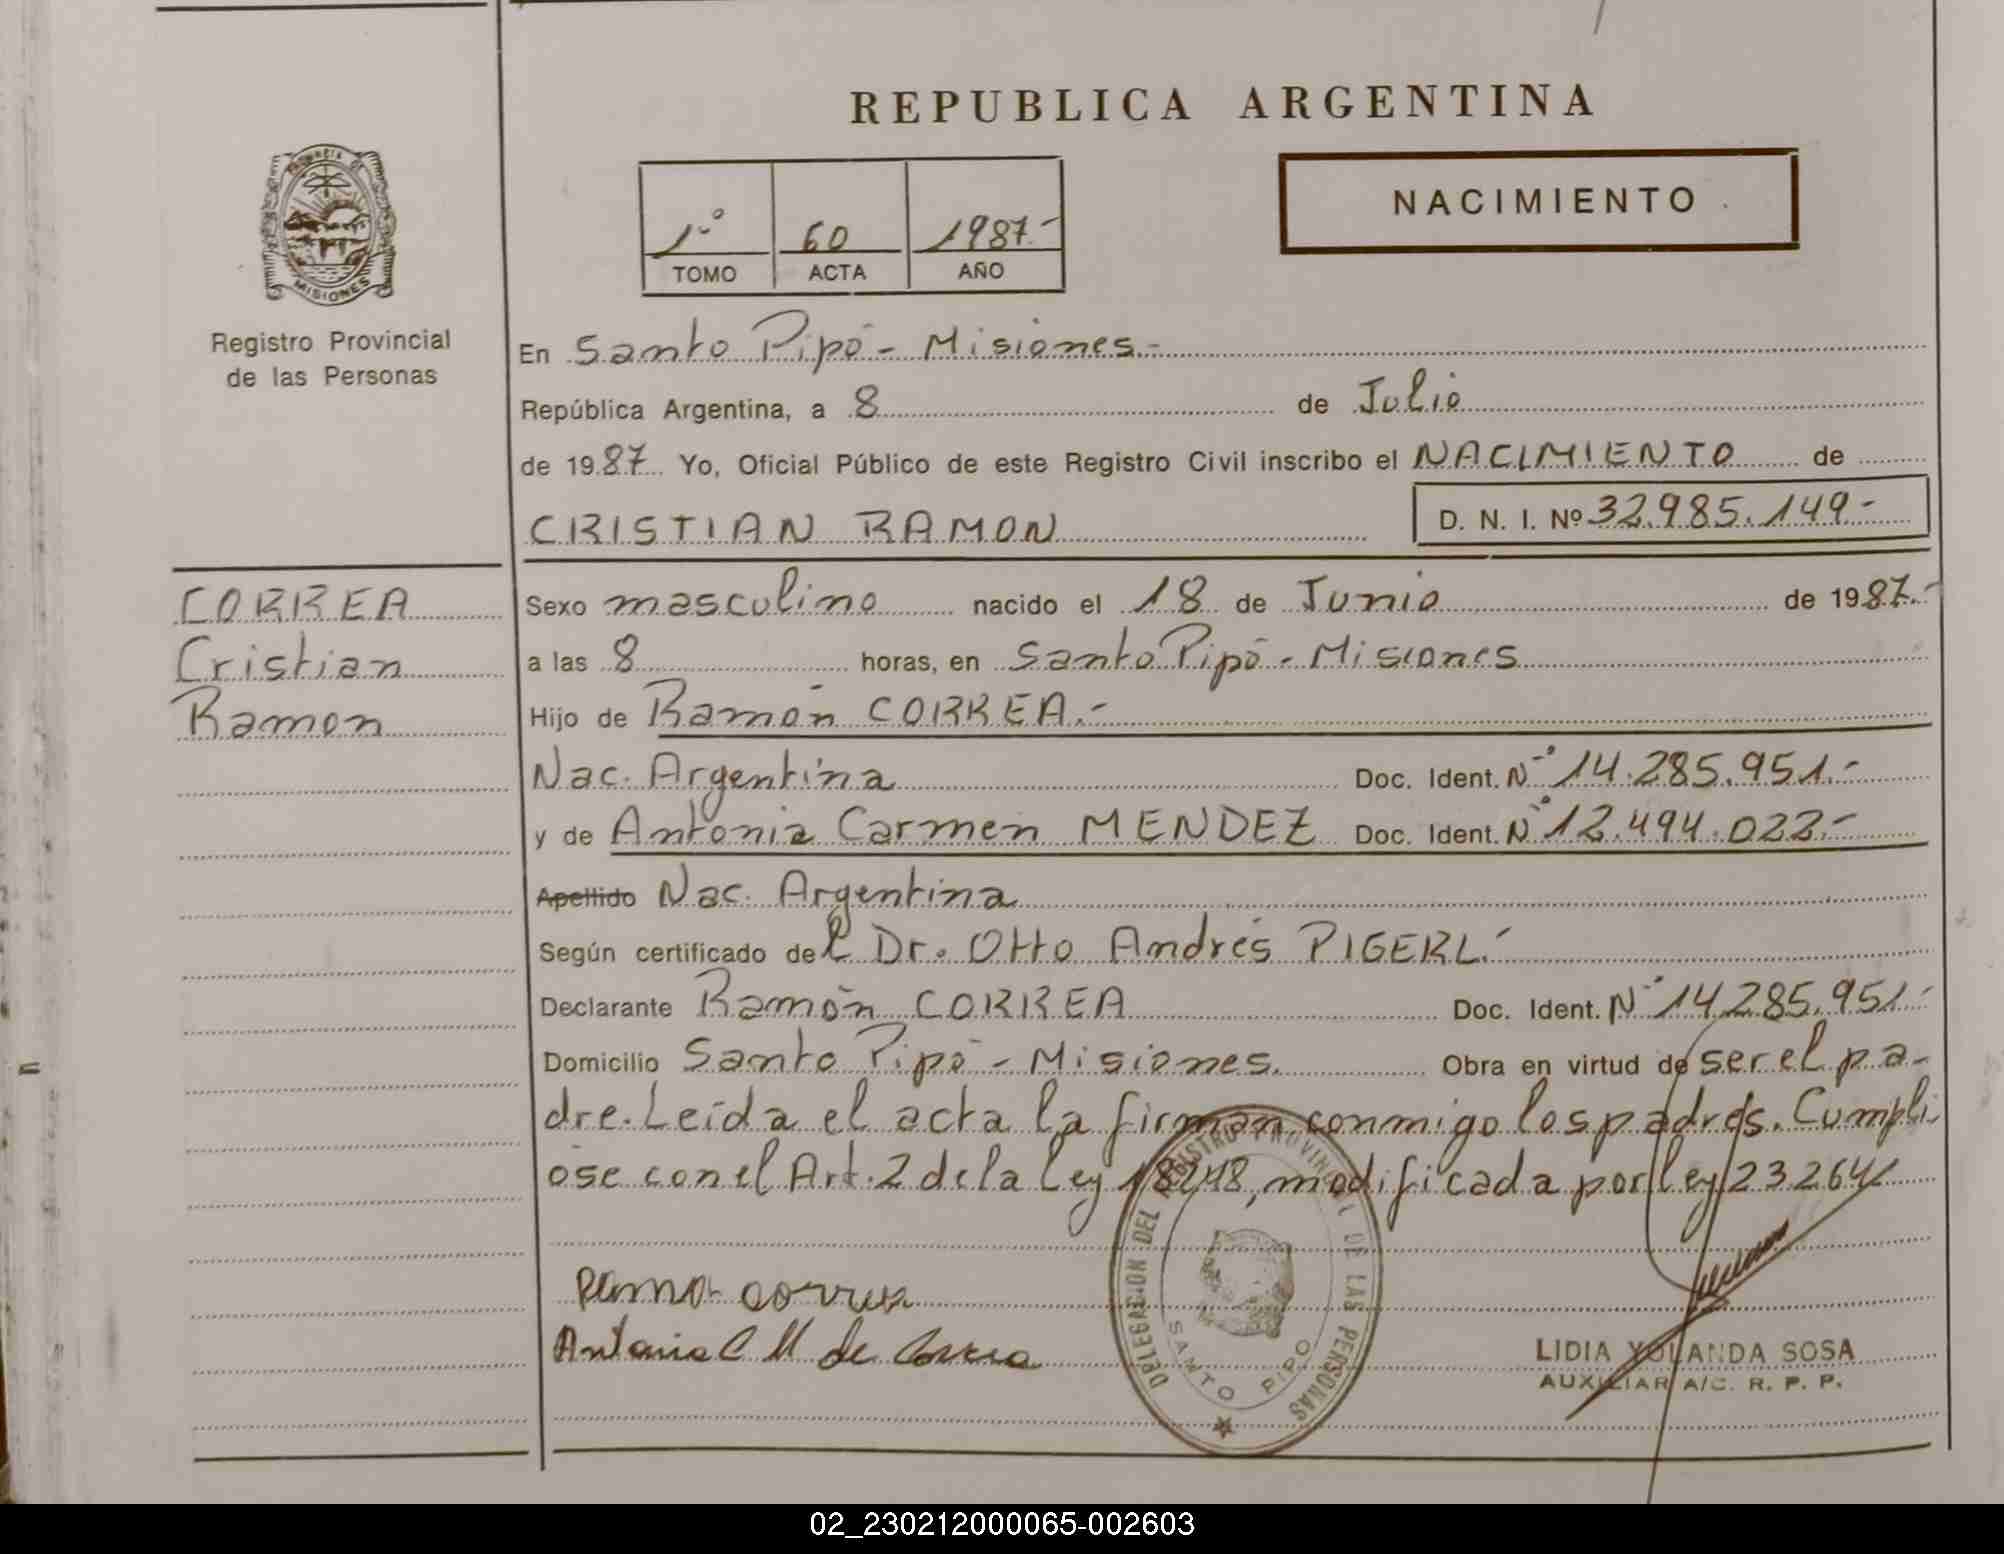 REPUBLICA ARGENTINA
PROVINCIA DE MISIONES
Registro Provincial
de las Personas
1º 60 1987.-
TOMO ACTA AÑO
NACIMIENTO
En Santo Pipó - Misiones.-
República Argentina, a 8 de Julio
de 1987 Yo, Oficial Público de este Registro Civil inscribo el NACIMIENTO de
CRISTIAN RAMON D. N. I. Nº 32.985.149-
CORREA
Cristian
Ramon
Sexo masculino nacido el 18 de Junio de 1987.-
a las 8 horas, en Santo Pipó - Misiones
Hijo de Ramón CORREA.-
Nac. Argentina Doc. Ident. Nº 14.285.951.-
y de Antonia Carmen MENDEZ Doc. Ident. Nº 12.494.022-
Apellido Nac. Argentina
Según certificado del Dr. Otto Andrés PIGERL.
Declarante Ramón CORREA Doc. Ident. Nº 14.285.951.-
Domicilio Santo Pipó - Misiones. Obra en virtud de ser el pa-
dre. Leída el acta la firman conmigo los padres. Cumpli-
óse con el Art. 2 de la Ley 18248, modificada por ley 23264
Ramon Correa
Antonia C M de Correa
DELEGACION DEL REGISTRO PROVINCIAL DE LAS PERSONAS
SANTO PIPO
LIDIA YOLANDA SOSA
AUXILIAR A/C. R. P. P.
02_230212000065-002603